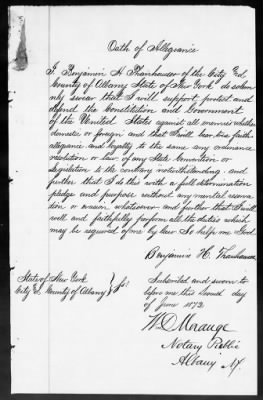 Oath of Allegiance
I, Benjamin H. Thanhauser of the City &
County of Albany State of New York do solem
nly swear that I will support protect and
defend the Constitution and Government
of the United States against all enemies whether
domestic or foreign and that I will bear true faith
allegiance and loyalty to the same any ordinance
resolution or law of any State Convention or
Legislature to the contrary notwithstanding and
further that I do this with a full determination
pledge and purpose without any mental reserva
tion or evasion whatsoever and further that I will
well and faithfully perform all the duties which
may be required of me by law So help me God
Benjamin H. Thanhauser
State of New York
City & County of Albany } ss:
Subscribed and sworn to
before me this second day
of June 1873
W D Morange
Notary Public
Albany N.Y.